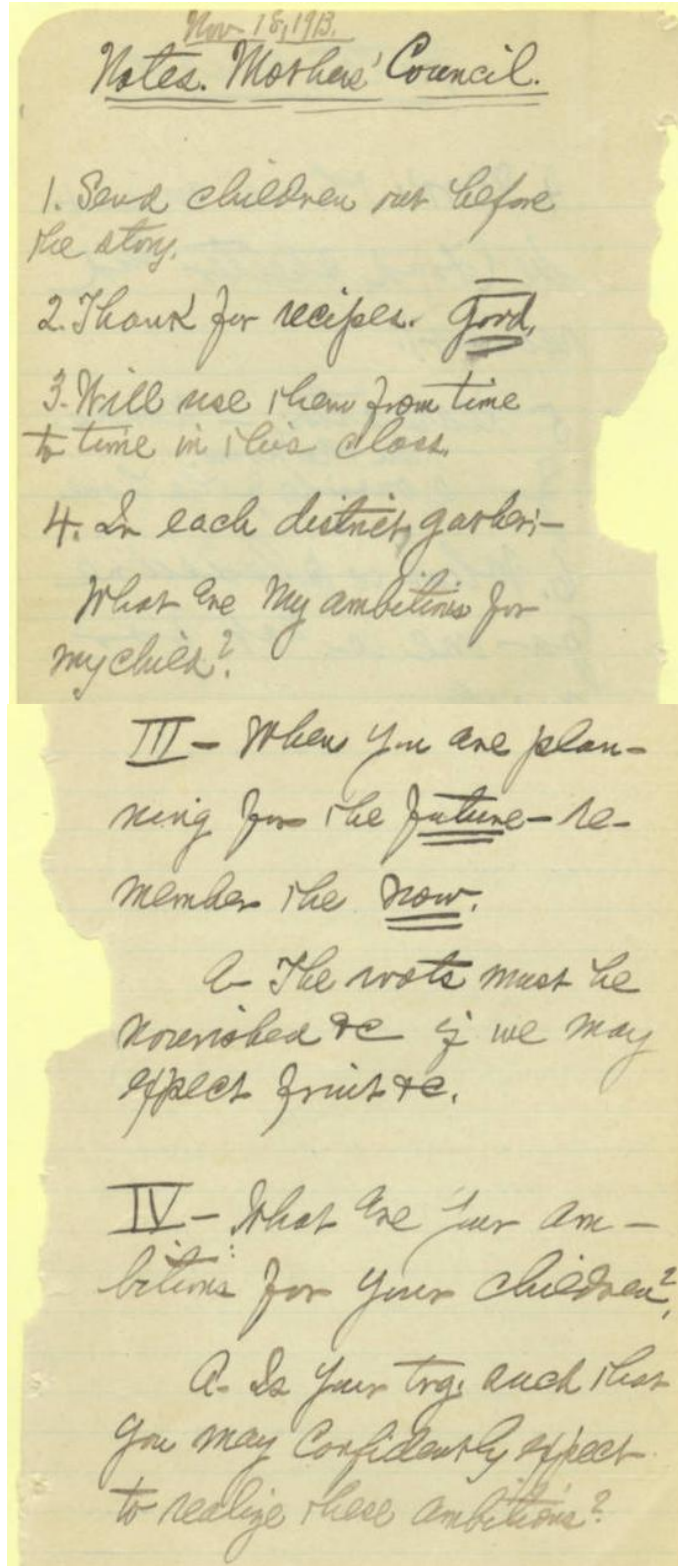 Nov. 18, 1913.
Notes. Mothers' Council.
1. Send children out before
the story.
2. Thank for recipes. Good.
3. Will use them from time
to time in this class.
4. In each district, gather:-
What are my ambitions for
my child?
III - When you are plan-
ning for the future - re-
member the now.
a- The roots must be
nourished &c if we may
expect fruit &c.
IV - What are your am-
bitions for your children?
a- Is your trg. such that
you may confidently expect
to realize these ambitions?